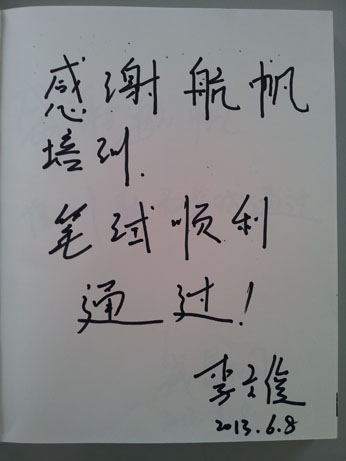 感谢航帆
培训.
笔试顺利
通过!
李文俊
2013.6.8